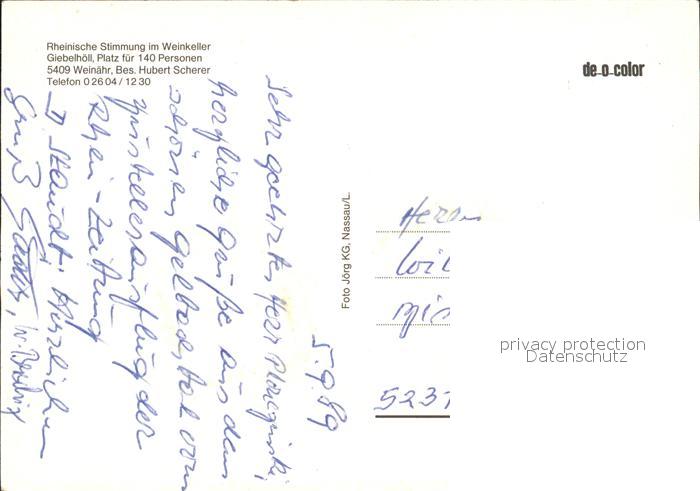 Rheinische Stimmung im Weinkeller
Giebelhöll, Platz für 140 Personen
5409 Weinähr, Bes. Hubert Scherer
Telefon 0 26 04 / 12 30
de-o-color
Foto Jörg KG, Nassau/L.
5.9.89
Sehr geehrter Herr
herzliche Grüße aus dem
schönen Gelbachtal vom
Zustellerausflug der
Rhein-Zeitung
Herzlichen
Gruß
Herrn
Wil
523
privacy protection
Datenschutz